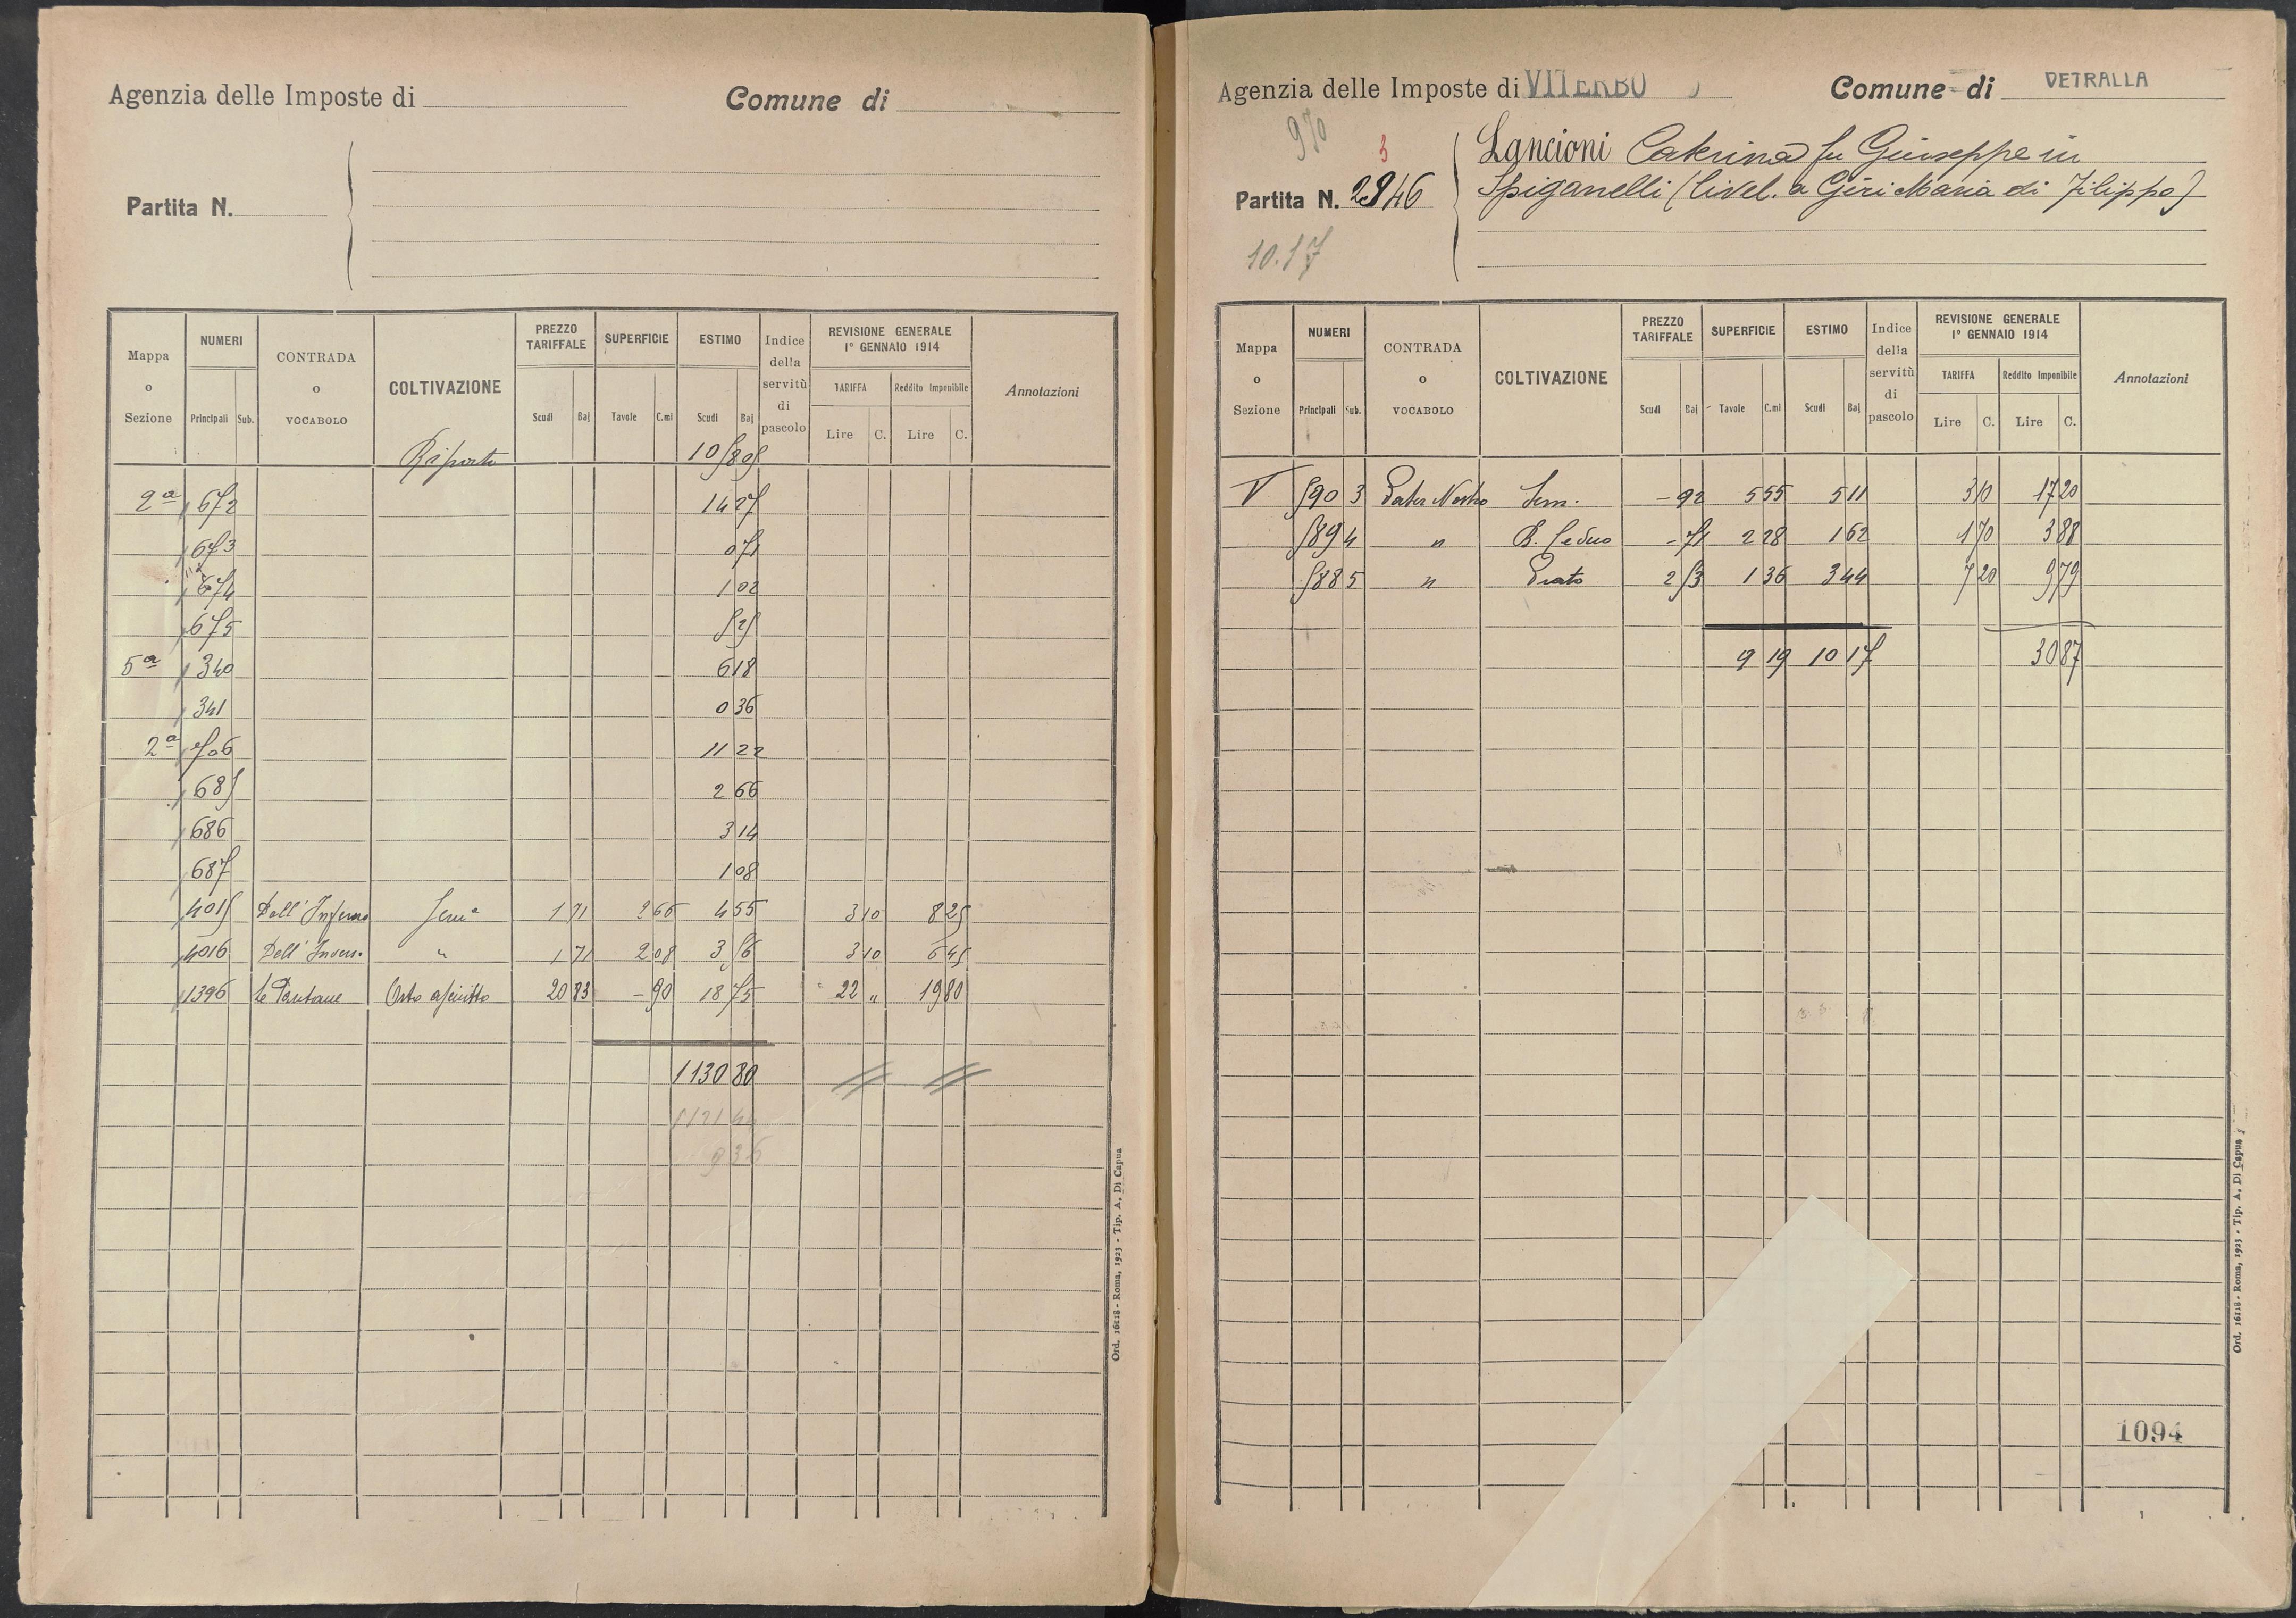 Agenzia delle Imposte di
Comune di
Partita N.
Mappa o Sezione | NUMERI Principali Sub. | CONTRADA o VOCABOLO | COLTIVAZIONE | PREZZO TARIFFALE Scudi Baj | SUPERFICIE Tavole C.mi | ESTIMO Scudi Baj | Indice della servitù di pascolo | REVISIONE GENERALE 1° GENNAIO 1914 TARIFFA Lire C. Reddito Imponibile Lire C. | Annotazioni
Riporto
2ª 672 14 27
673 0 71
674 1 02
675 5 25
5ª 340 6 18
341 0 36
2ª 706 11 22
685 2 66
686 3 14
687 1 08
4015 Dell' Inferno Semº 1 71 2 66 4 55 3 10 8 25
4016 Dell' 1 71 2 08 3 56 3 10 6 45
1396 Le Pantane Orto asciutto 20 83 - 90 18 75 22 " 19 80
1130 80
1121 44
9 36
Ord. 16118 - Roma, 1923 - Tip. A. Di Capua
Agenzia delle Imposte di VITERBO
Comune di VETRALLA
970
3
Partita N. 2946
10.17
Lancioni Caterina fu Giuseppe in
Spiganelli (livel. a Giri Maria di Filippo)
Mappa o Sezione | NUMERI Principali Sub. | CONTRADA o VOCABOLO | COLTIVAZIONE | PREZZO TARIFFALE Scudi Baj | SUPERFICIE Tavole C.mi | ESTIMO Scudi Baj | Indice della servitù di pascolo | REVISIONE GENERALE 1° GENNAIO 1914 TARIFFA Lire C. Reddito Imponibile Lire C. | Annotazioni
V 590 3 Pater Nostro Sem. - 92 5 55 5 11 3 10 17 20
589 4 " B. Ceduo - 71 2 28 1 62 1 70 3 88
588 5 " Prato 2 53 1 36 3 44 7 20 9 79
9 19 10 17 30 87
1094
Ord. 16118 - Roma, 1923 - Tip. A. Di Capua